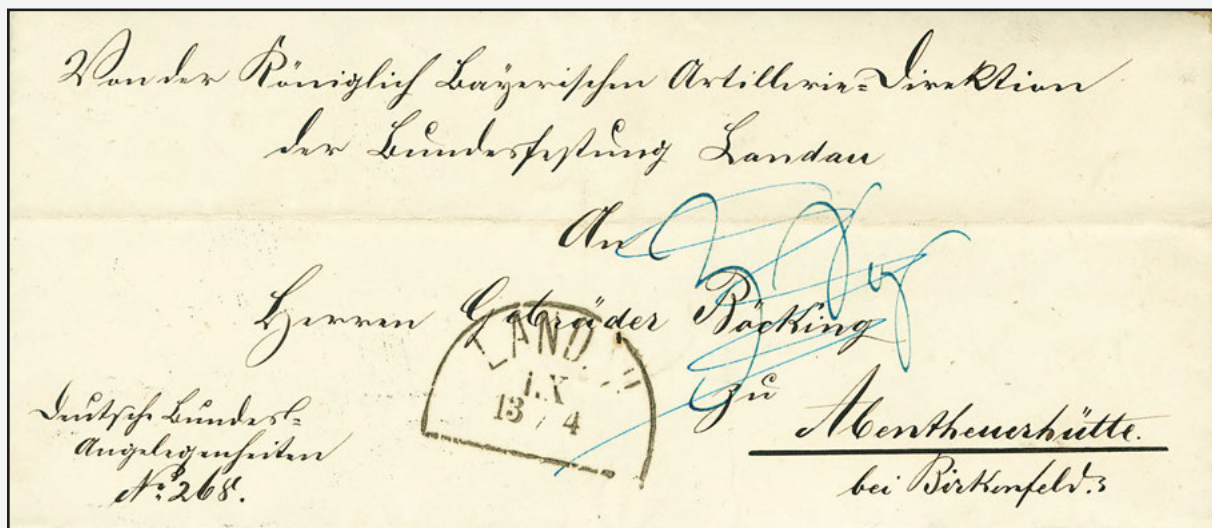 Von der Königlich Bayerischen Artillerie=Direktion
der Bundesfestung Landau
An
Herren Gebrüder Böcking
LAND
13 / 4
zu
Abentheuerhütte.
bei Birkenfeld.
Deutsche Bundes=
Angelegenheiten
No. 268.